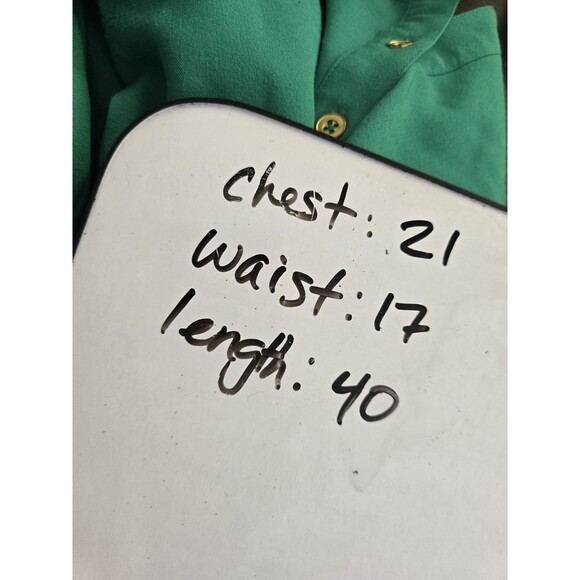 chest: 21
waist: 17
length: 40